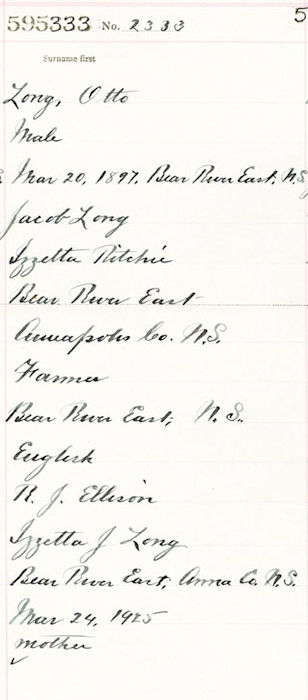 595333 No. 2333
5
Surname first
Long, Otto
Male
Mar 20, 1897, Bear River East, N.S.
Jacob Long
Izzetta Ritchie
Bear River East
Annapolis Co. N.S.
Farmer
Bear River East, N.S.
English
R. J. Ellison
Izzetta J Long
Bear River East, Anna Co. N.S.
Mar 24, 1925
mother